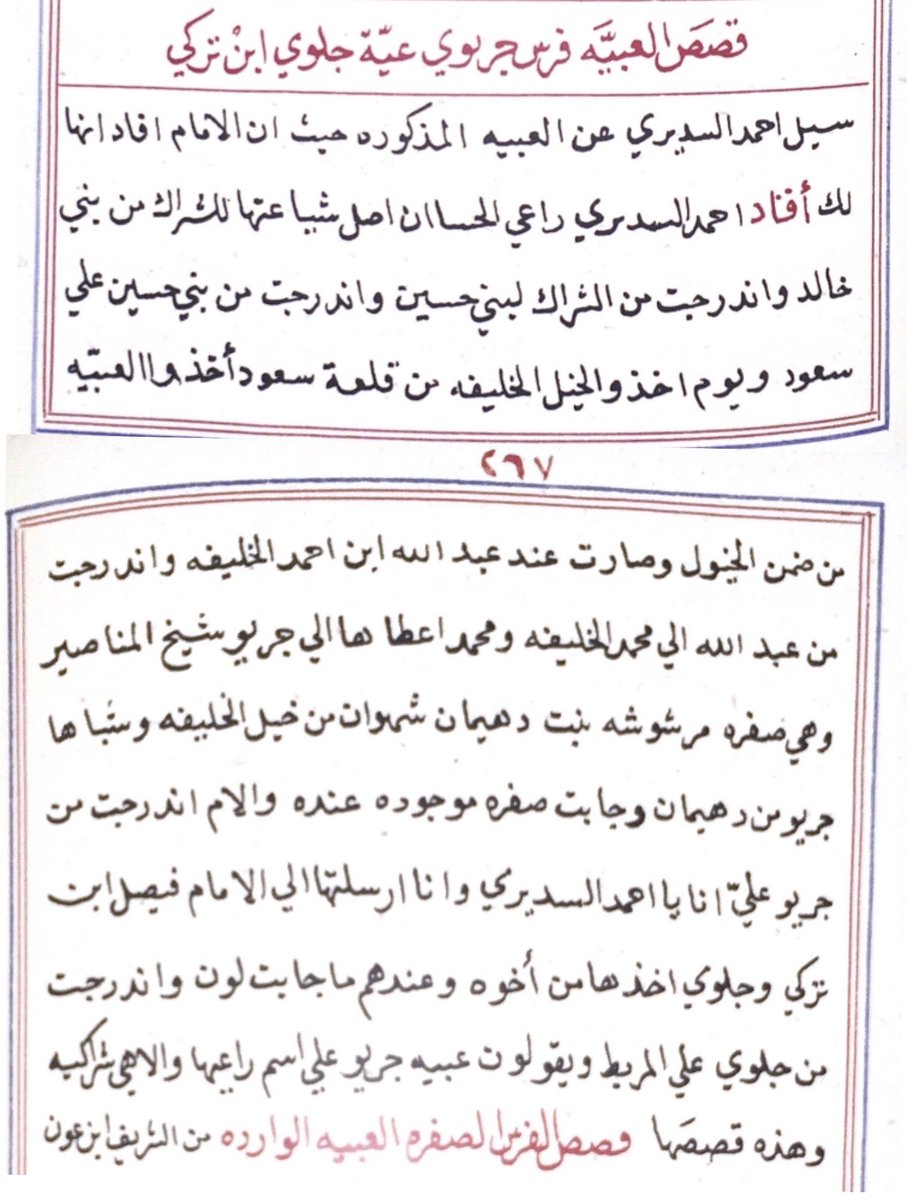 قصص العبيّه فرس جريوي عيّة جلوي ابن تركي
سيل احمد السديري عن العبيه المذكوره حيث ان الامام افاد انها
لك أفاد احمد السديري راعي الحسا ان اصل شبا عتها للشراك من بني
خالد واندرجت من الشراك لبني حسين واندرجت من بني حسين علي
سعود ويوم اخذوا الخيل الخليفه من قلعة سعود أخذوا العبيّه
٢٦٧
من ضمن الخيول وصارت عند عبد الله ابن احمد الخليفه واندرجت
من عبد الله الي محمد الخليفه ومحمد اعطا ها الي جريو شيخ المناصير
وهي صفره مرشوشه بنت دهيمان شهوان من خيل الخليفه وشبا ها
جريو من دهيمان وجابت صفره موجوده عنده والام اندرجت من
جريو عليّ انا يا احمد السديري وانا ارسلتها الي الامام فيصل ابن
تركي وجلوي اخذها من أخوه وعندهم ما جابت لون واندرجت
من جلوي علي المربط ويقولون عبيه جريو علي اسم راعيها والا هي شراكيه
وهذه قصصها قصص الفرس الصفره العبيه الوارده من الشريف ابن عون